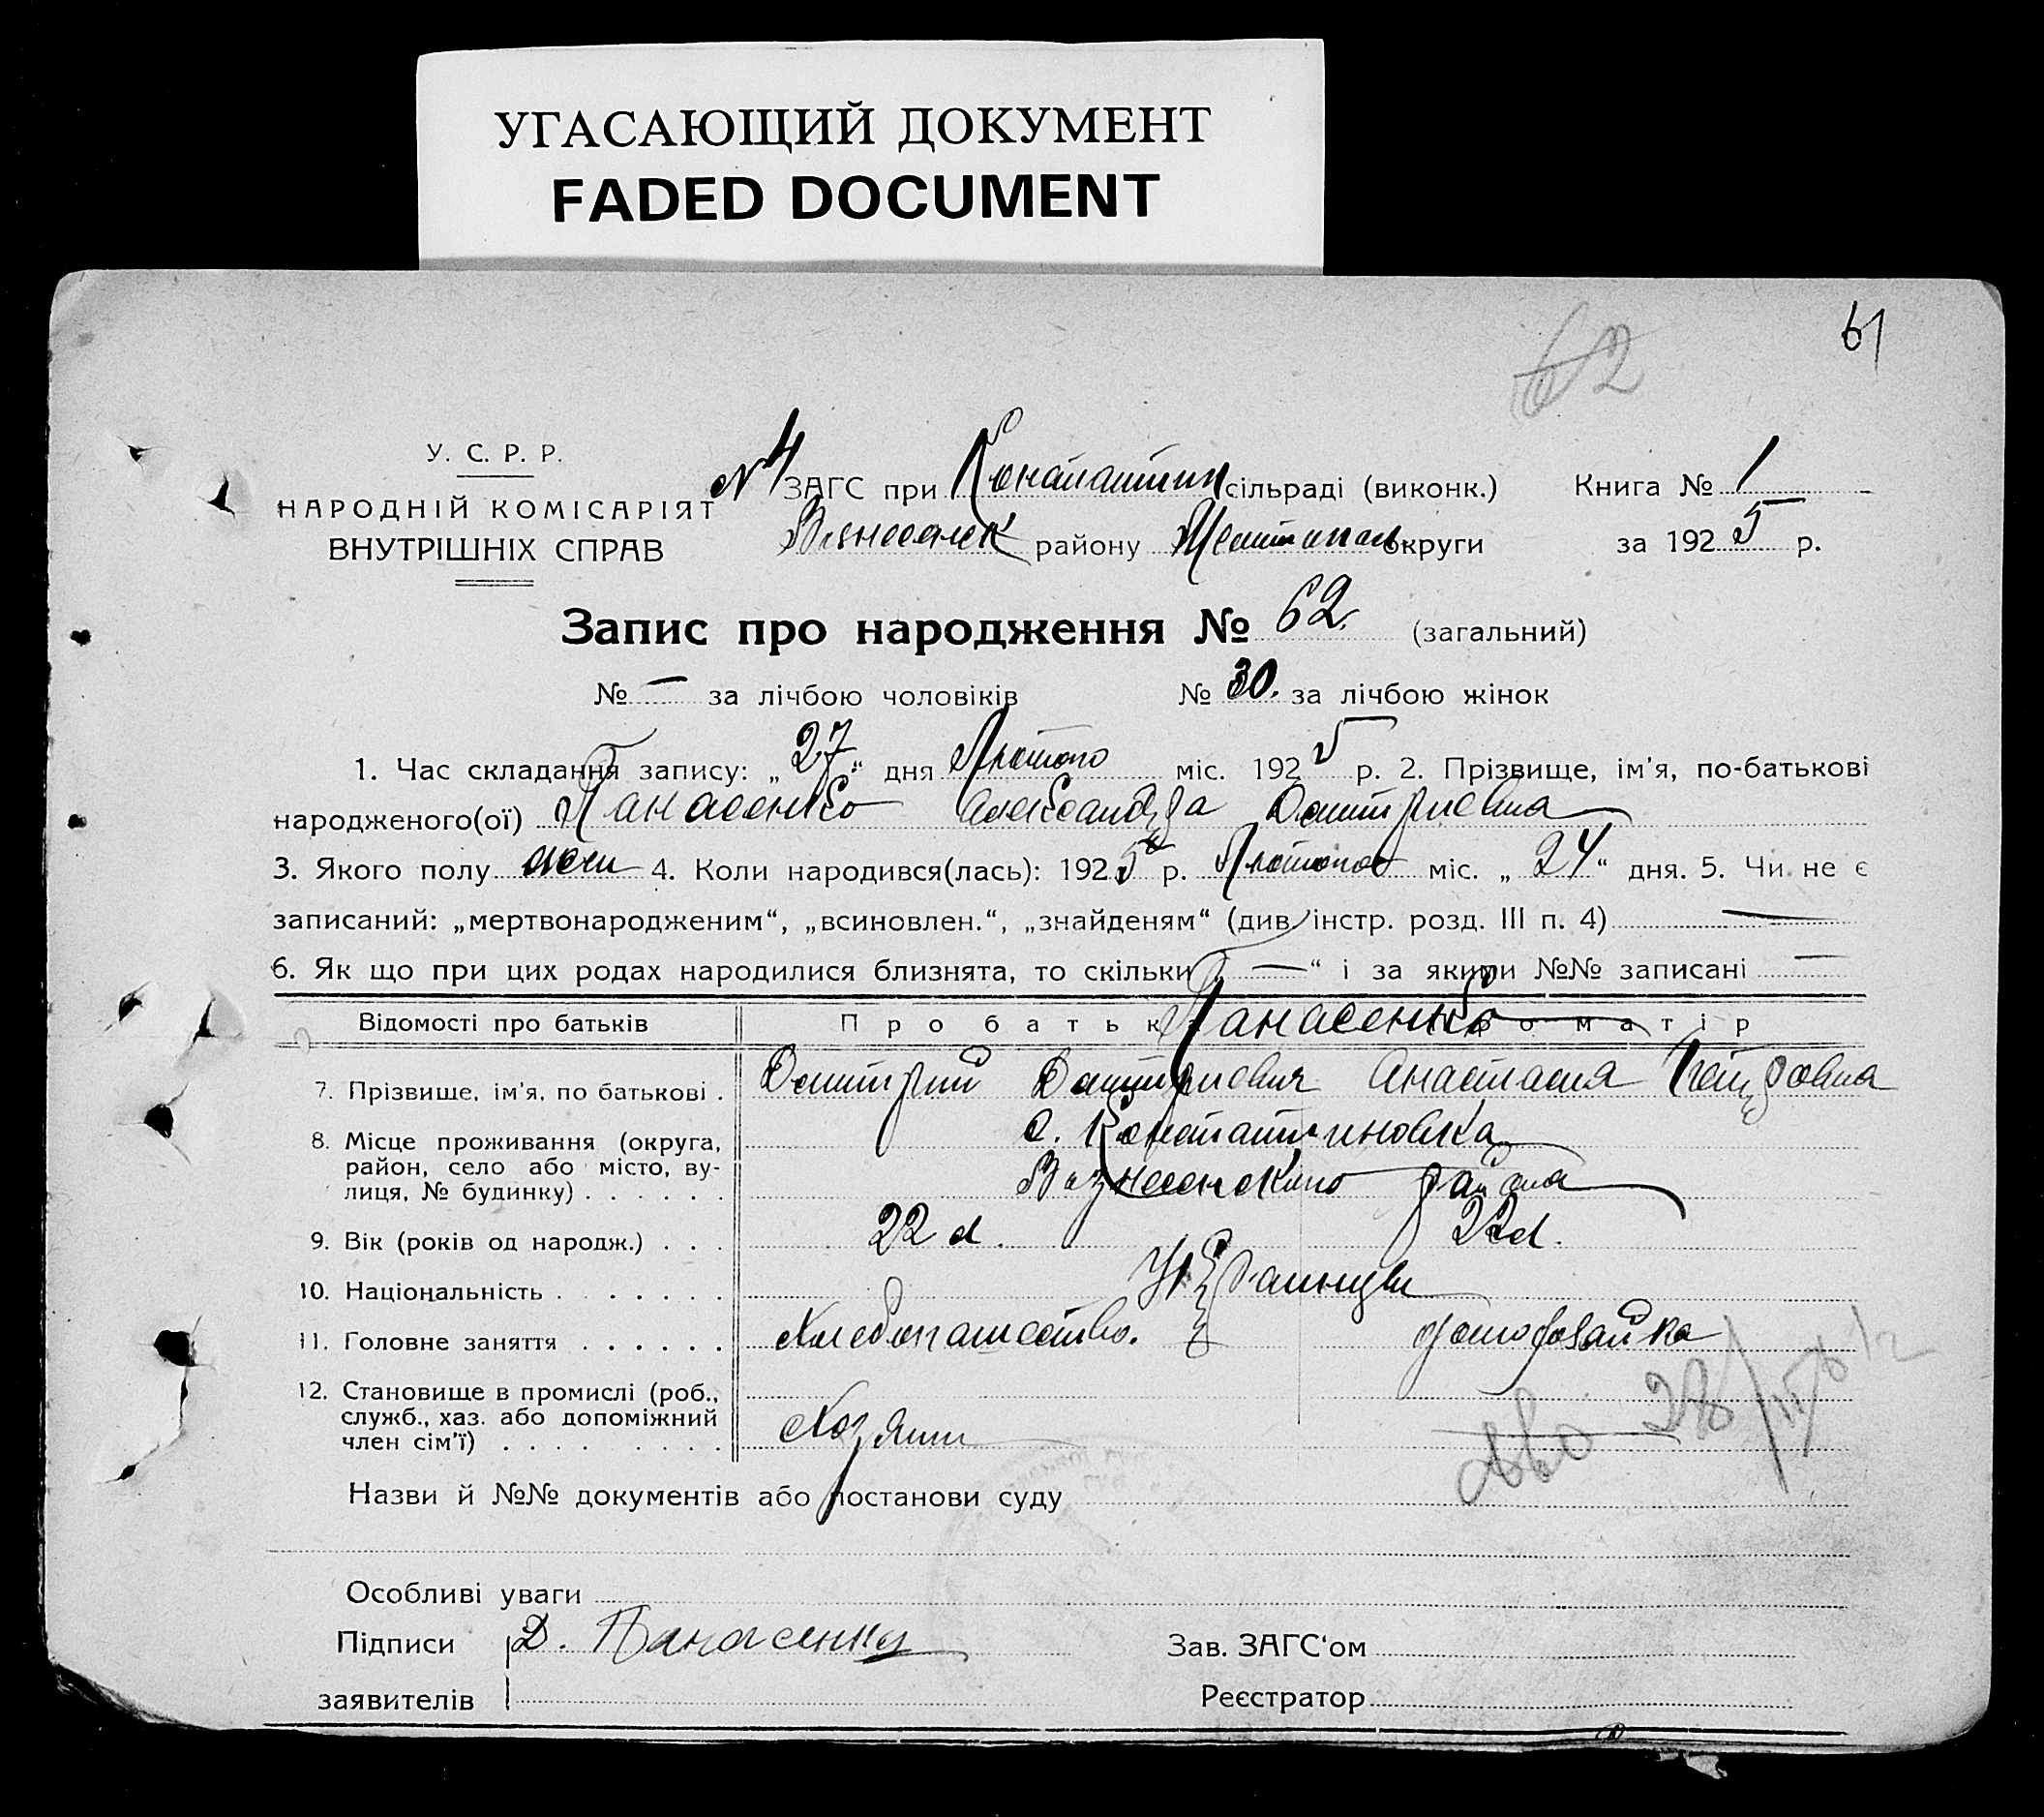 УГАСАЮЩИЙ ДОКУМЕНТ
FADED DOCUMENT
62
61
У. С. Р. Р.
НАРОДНІЙ КОМІСАРІЯТ
ВНУТРІШНІХ СПРАВ
№ 4 ЗАГС при Константин сільраді (виконк.) Книга № 1
району округи за 1925 р.
Запис про народження № 62. (загальний)
№ — за лічбою чоловіків № 30. за лічбою жінок
1. Час складання запису: „27“ дня Лютого міс. 1925 р. 2. Прізвище, ім'я, по-батькові
народженого(ої) Панасенко Александра Дмитриевна
3. Якого полу жен 4. Коли народився(лась): 1925 р. Лютого міс. „24“ дня. 5. Чи не є
записаний: „мертвонародженим“, „всиновлен.“, „знайденям“ (див інстр. розд. III п. 4) —
6. Як що при цих родах народилися близнята, то скільки „—“ і за якими №№ записані —
Відомості про батьків Про батька Панасенко Про матір
7. Прізвище, ім'я, по батькові . Дмитрий Дмитриевич Анастасия Петровна
8. Місце проживання (округа, с. Константиновка
район, село або місто, ву- Вознесенского района
лиця, № будинку) . . . . . .
9. Вік (років од народж.) . . . 22 л. 22 л.
10. Національність . . . . . . . Украинцы
11. Головне заняття . . . . . . Хлебопашество. домохозайка
12. Становище в промислі (роб.,
служб., хаз. або допоміжний
член сім'ї) . . . . . . . . . Хозяин —
28/
Назви й №№ документів або постанови суду
Особливі уваги
Підписи Д. Панасенко Зав. ЗАГС'ом
заявителів Реєстратор